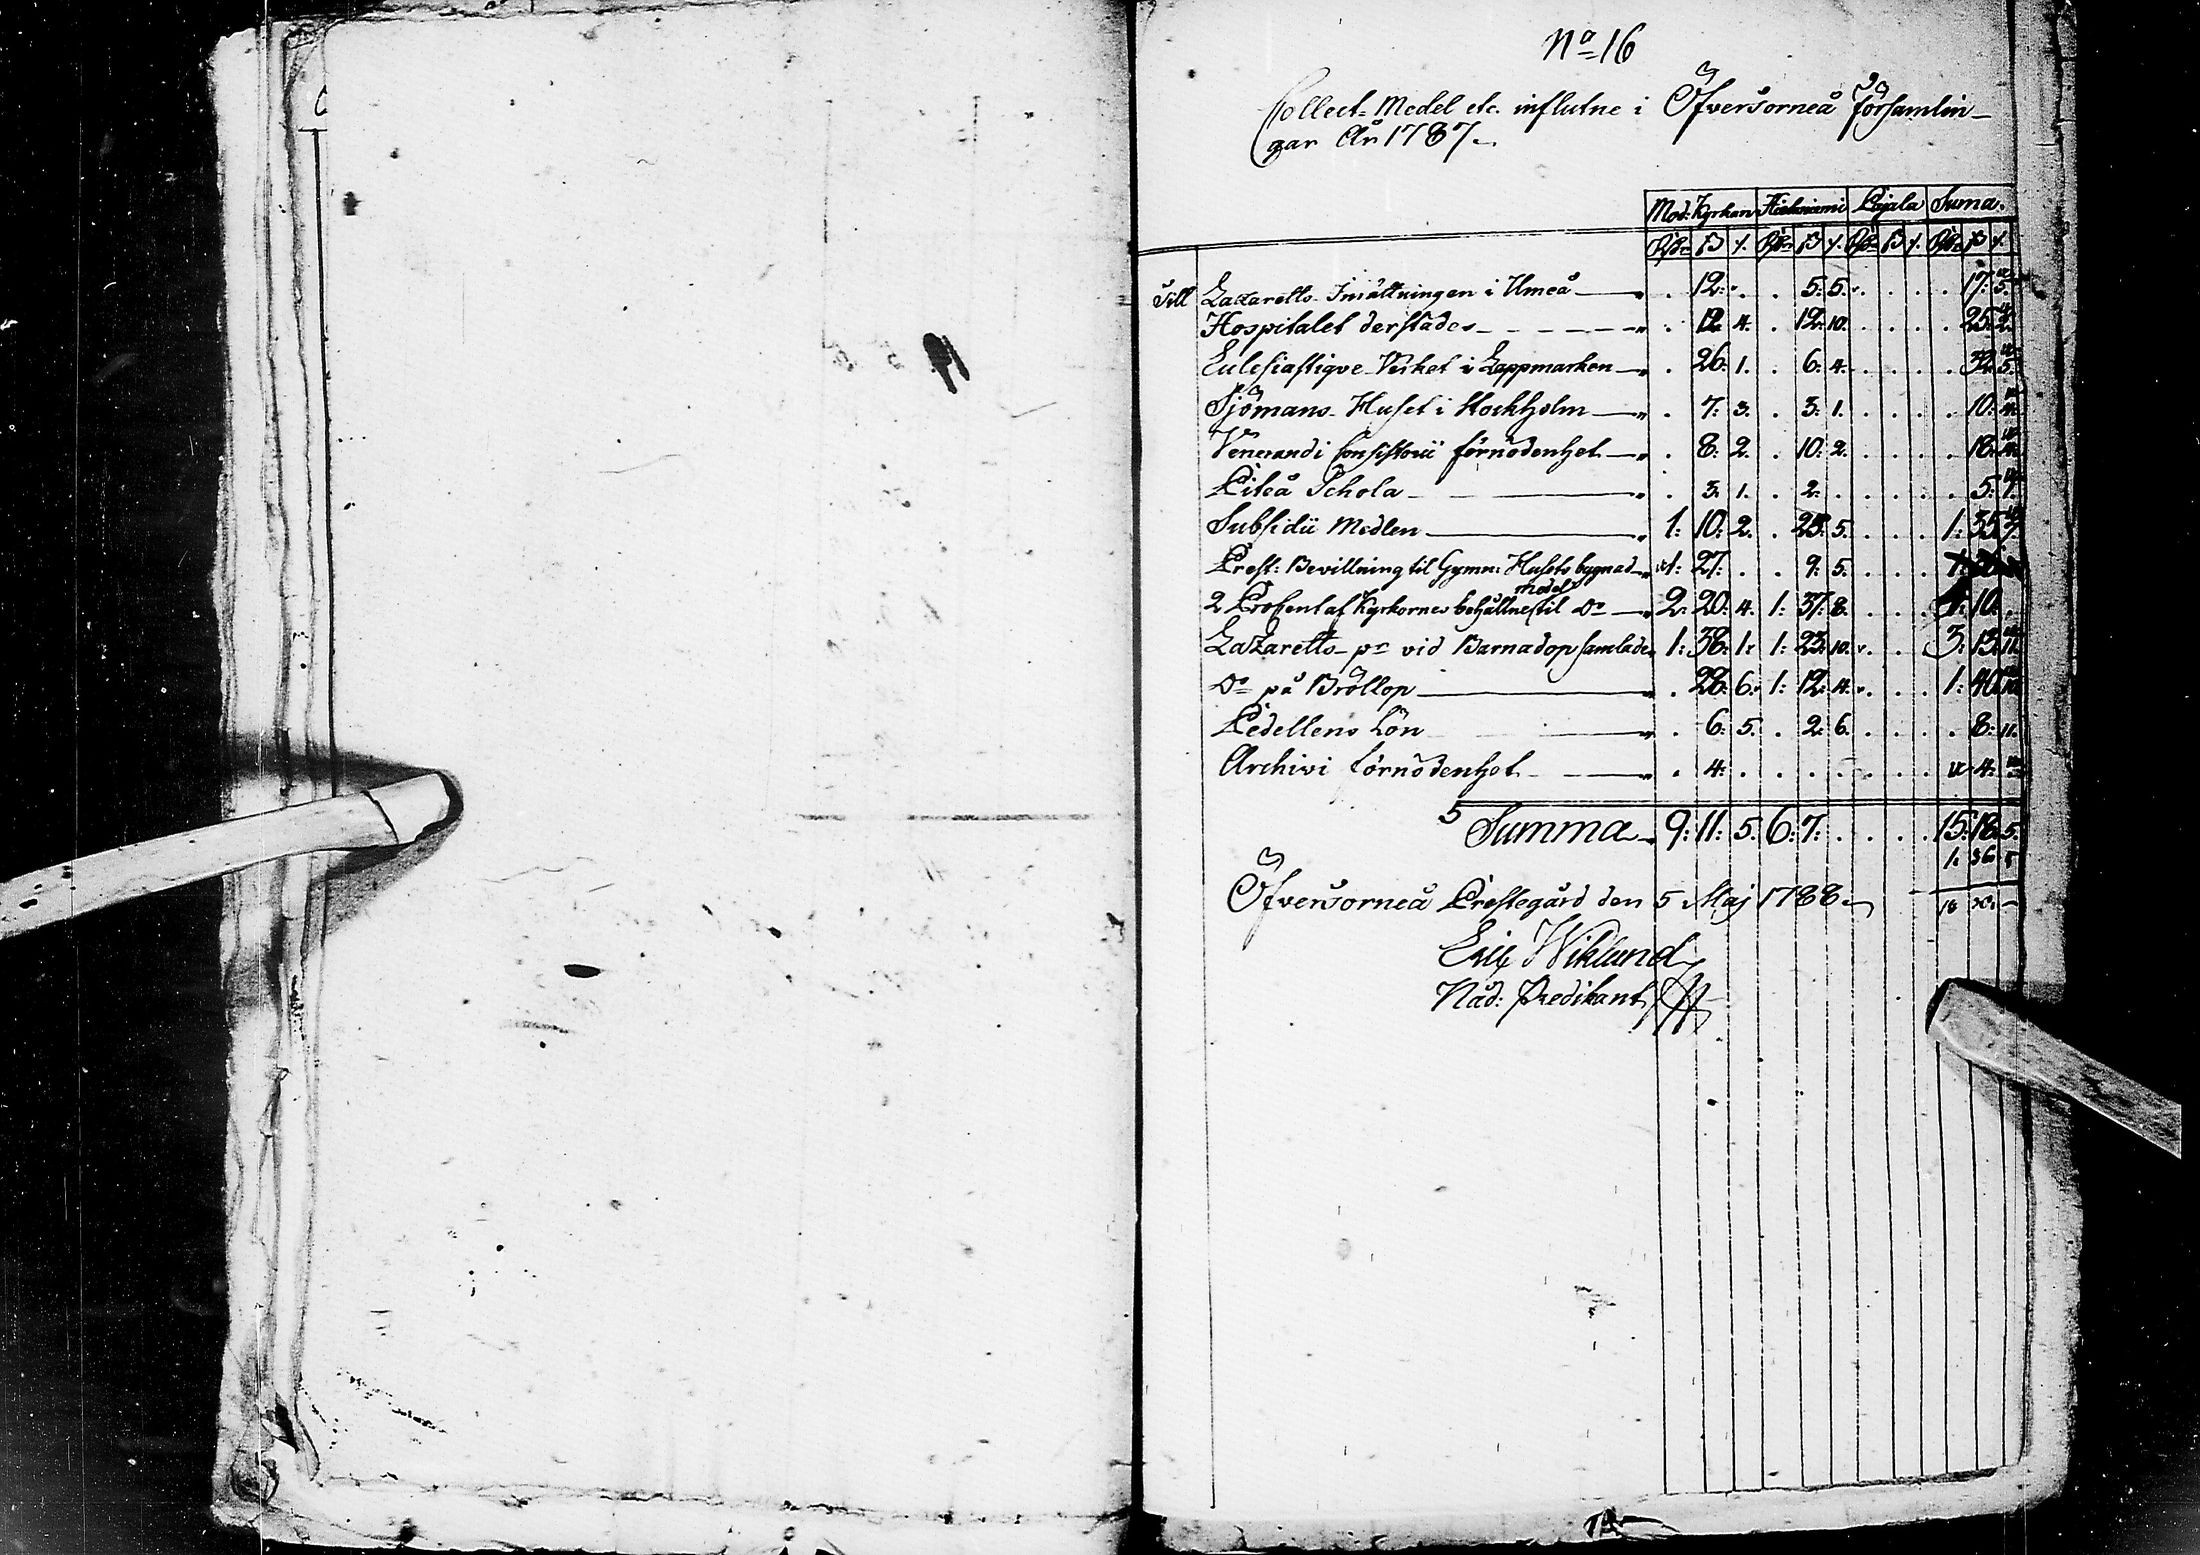 No 16
Collect-Medel etc. influtne i Öfvertorneå församlin-
gar År 1787.
Mod: Kyrkan Hietaniemi Pajala Suma.
Rdr ß /. Rdr ß /. Rdr ß /. Rdr ß /.
Till Lazaretts-Inrättningen i Umeå . 12: . . 5: 5. . . . . 17: 5.
Hospitalet derstädes . 12. 4. . 12: 10. . . . . 25: 2.
Eclesiastiqve Verket i Lappmarken . 26: 1. . 6: 4. . . . . 32: 5.
Sjömans-Huset i Stockholm . 7: 3. . 3: 1. . . . . 10: 4.
Venerandi Consistorii förnödenhet . 8: 2. . 10: 2. . . . . 18: 4.
Piteå Schola . 3. 1. . 2: . . . . . 5: 1.
Subsidii Medlen 1: 10: 2. . 25: 5. . . . 1: 35: 7.
Prest: Bevillning til Gymn: Husets bygnad 1: 27: . . 9: 5. . . .
medel
2 Procent af Kyrkornes behållne til Do 2: 20: 4. 1: 37: 8. . . . 10: .
Lazaretts-pr vid Barnadop samlade 1: 38: 1. 1: 23: 10. . . . 3: 13: 11.
Do på Bröllop . 28: 6. 1: 12: 4. . . . 1: 40: 10.
Pedellens Lön . 6: 5. . 2: 6. . . . . 8: 11.
Archivi förnödenhet . 4: . . . . . . . 4:
Summa 9: 11: 5. 6: 7: . . . . 15: 18: 5.
1: 36 5
Öfvertorneå Prestegård den 5 Maj 1788.
Eric Wiklund
Nåd: Predikant